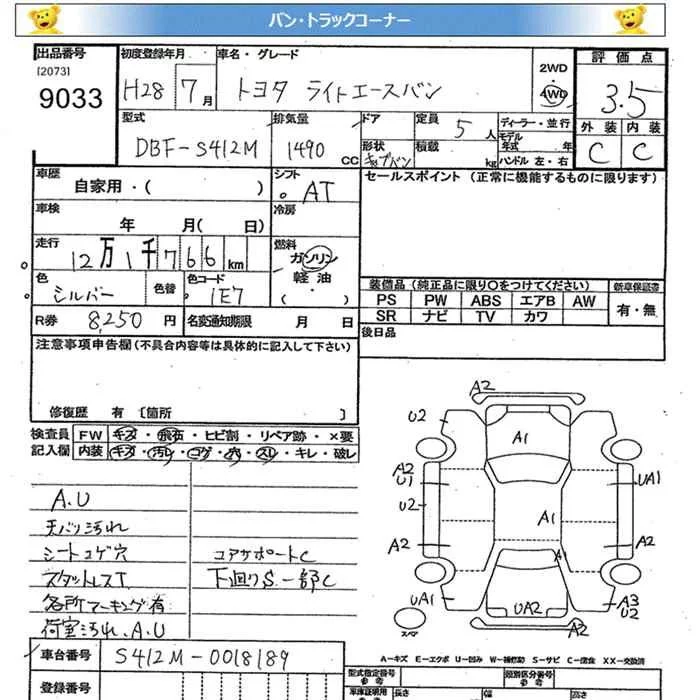 バン・トラックコーナー
出品番号 初度登録年月 車名・グレード 2WD 評価点
[2073] H28 7月 トヨタ ライトエースバン 4WD 3.5
9033
型式 排気量 ドア 定員 5人 ディーラー・並行 外装 内装
DBF-S412M 1490 CC 形状 積載 kg モデル年式 年 C C
キャブバン ハンドル 左・右
車歴 自家用・( ) シフト AT セールスポイント (正常に機能するものに限ります)
車検 年 月( 日) 冷房
走行 12万1千766km 燃料 ガソリン
軽油
・( )
色 シルバー 色替 色コード 1E7
装備品 (純正品に限り○をつけてください) 新車保証書
PS PW ABS エアB AW 有・無
SR ナビ TV カワ
R券 8,250円 名変通知期限 月 日 後日品
注意事項申告欄 (不具合内容等は具体的に記入して下さい)
修復歴 有 〔箇所 〕
検査員 FW キズ・飛石・ヒビ割・リペア跡・×要
記入欄 内装 キズ・汚レ・コゲ・穴・スレ・キレ・破レ
A.U
天バリ汚れ
シートコゲ穴 コアサポートC
スタットレスT 下廻りS.一部C
各所マーキング有
荷室汚れ、A.U
A2
U2
A1
A2
U1
UA1
U2
A1
A2
A2
A1
UA1
UA2
A3
U2
スペア
A2
A-キズ E-エクボ U-凹み W-補修跡 S-サビ C-腐食 XX-交換済
車台番号 S412M-0018189
登録番号
型式指定番号 類別区分番号
参考 参考
車庫証明用 長さ 幅 高さ